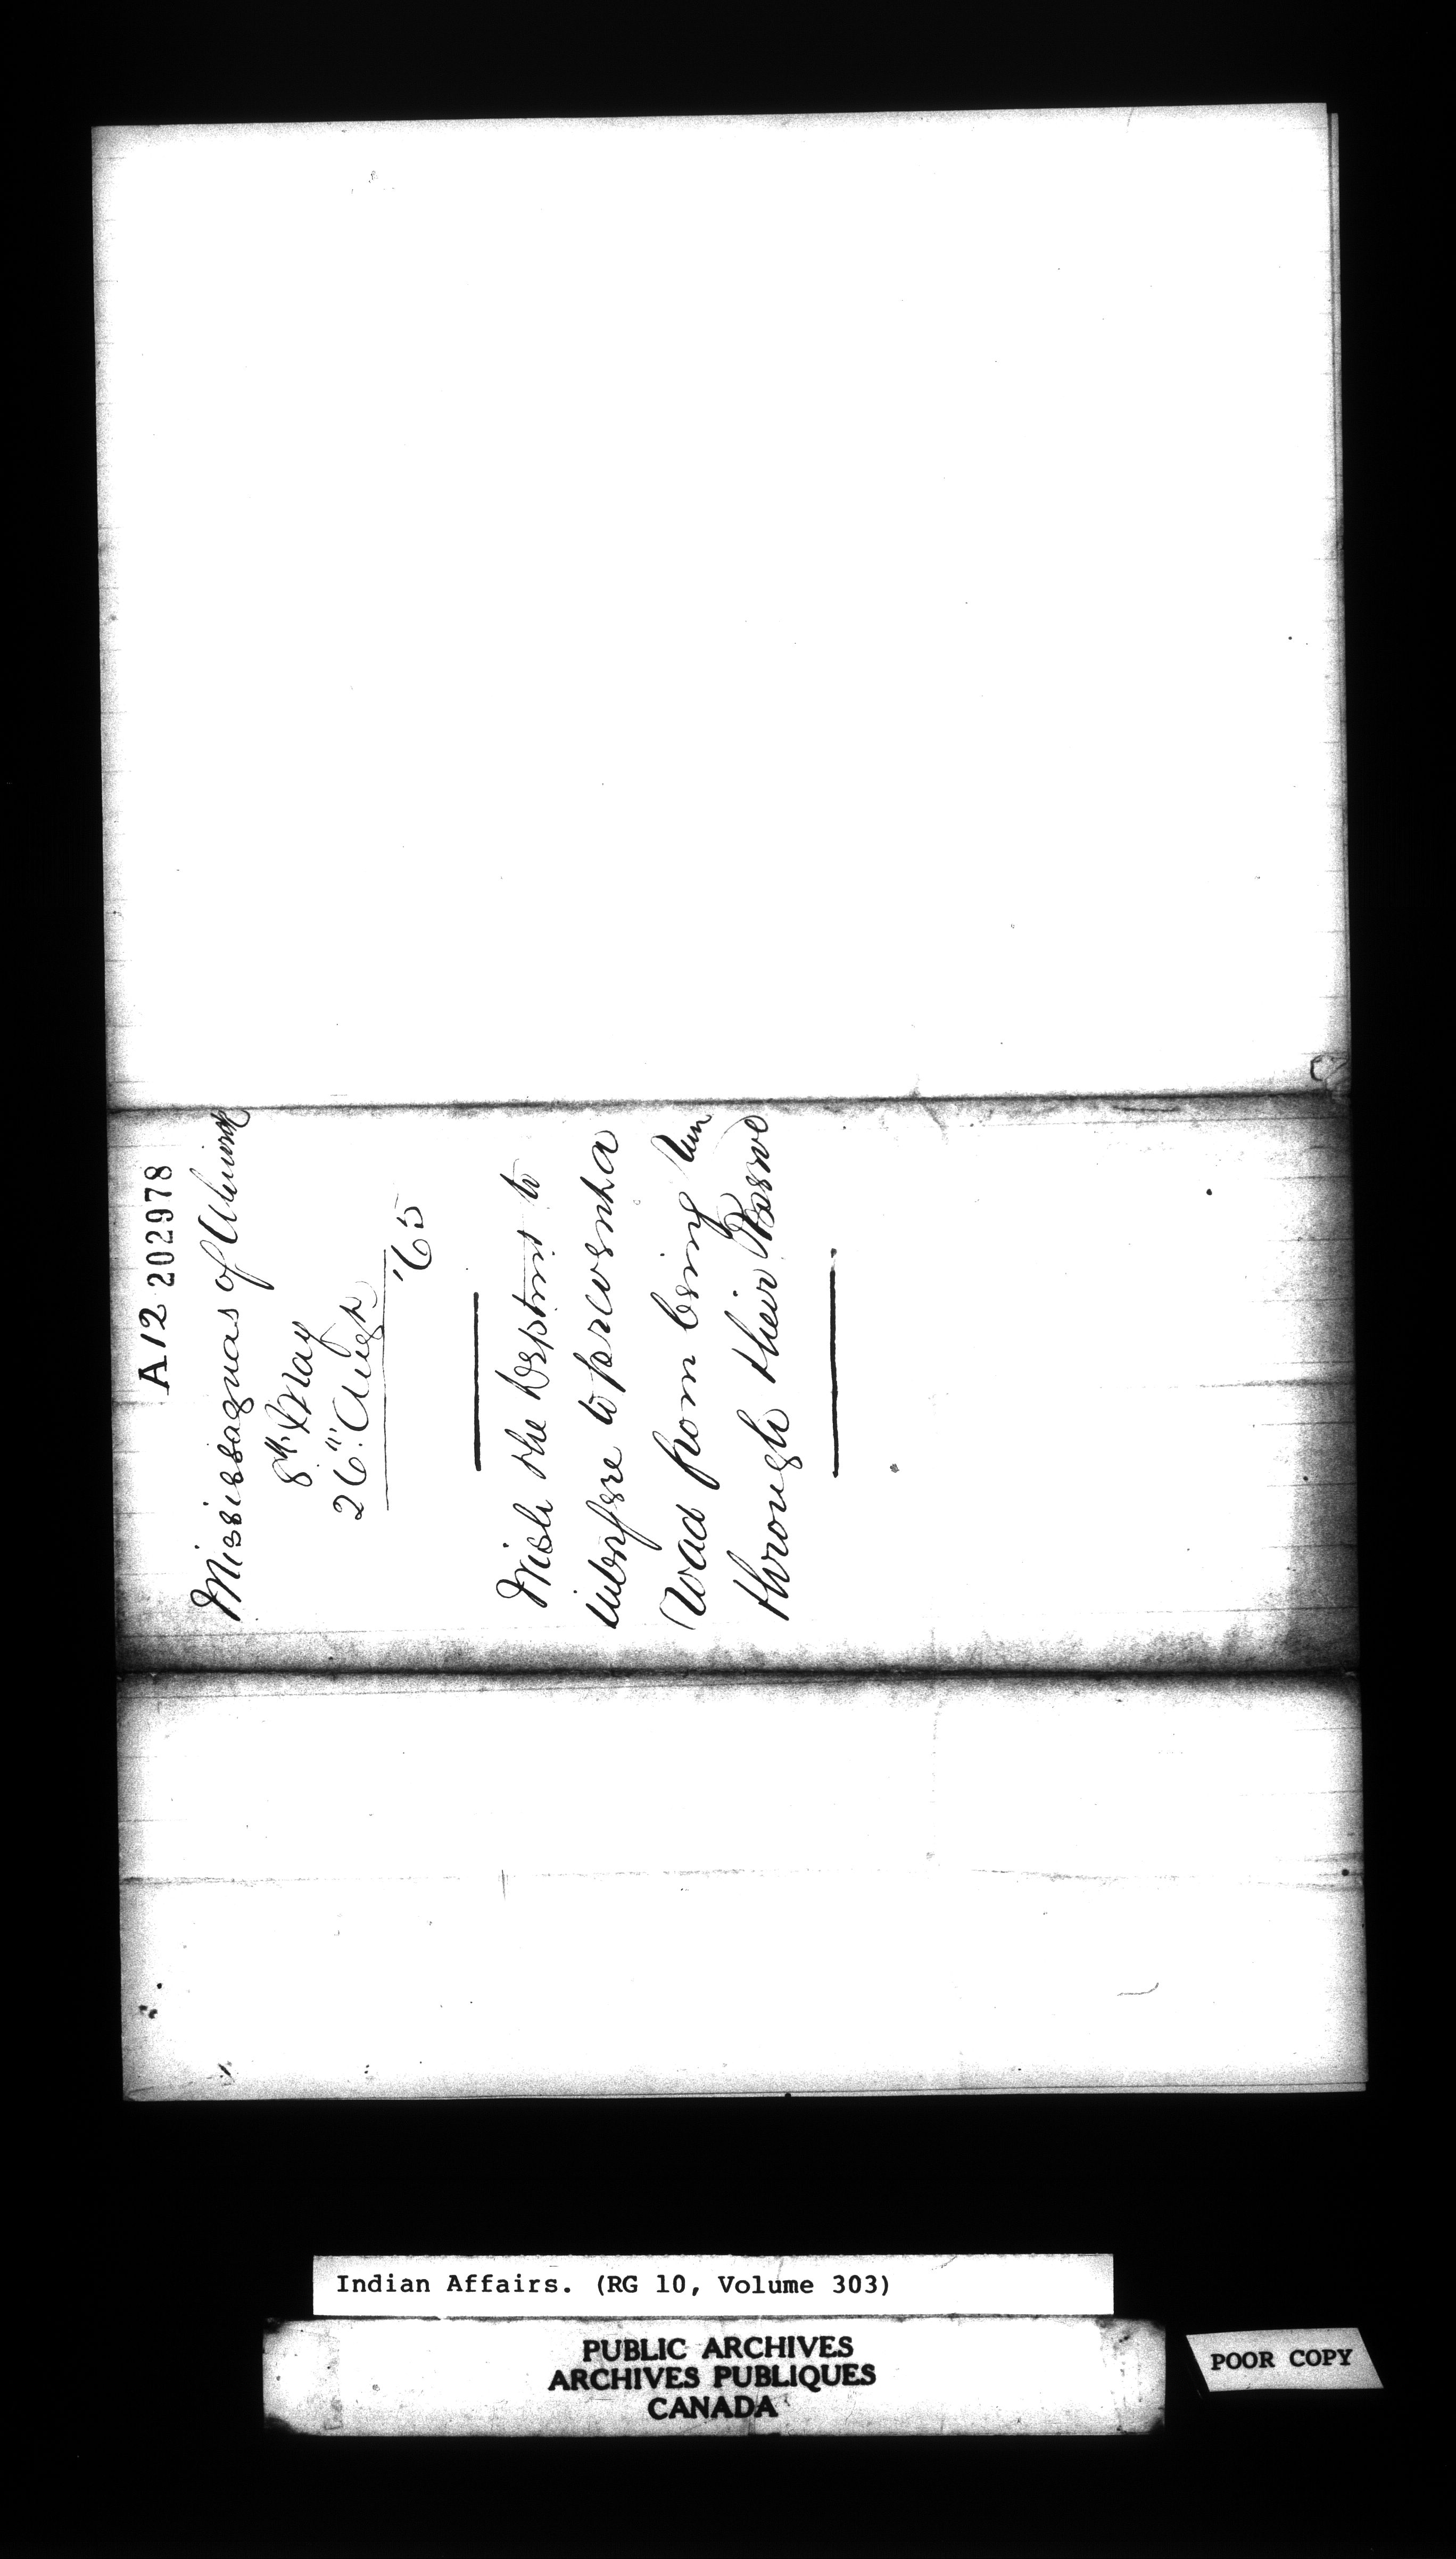 A12 202978
Mississaguas of Alnwick
8th May
26th Augt
'65
Wish the Deptmt to
interfere to prevent a
road from being run
through their Reserve
Indian Affairs. (RG 10, Volume 303)
PUBLIC ARCHIVES
ARCHIVES PUBLIQUES
CANADA
POOR COPY